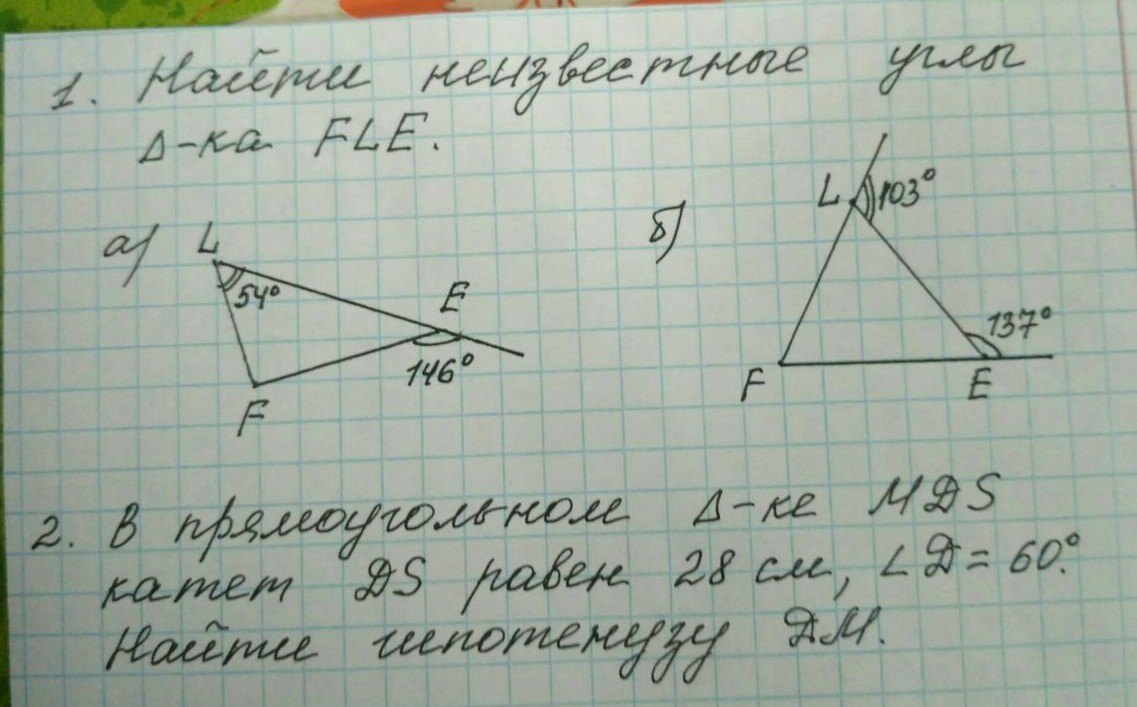 1. Найти неизвестные углы
Δ-ка FLE.
а) L 54° E 146° F
б) L 103° 137° F E
2. В прямоугольном Δ-ке MDS
катет DS равен 28 см, ∠D = 60°.
Найти гипотенузу DM.